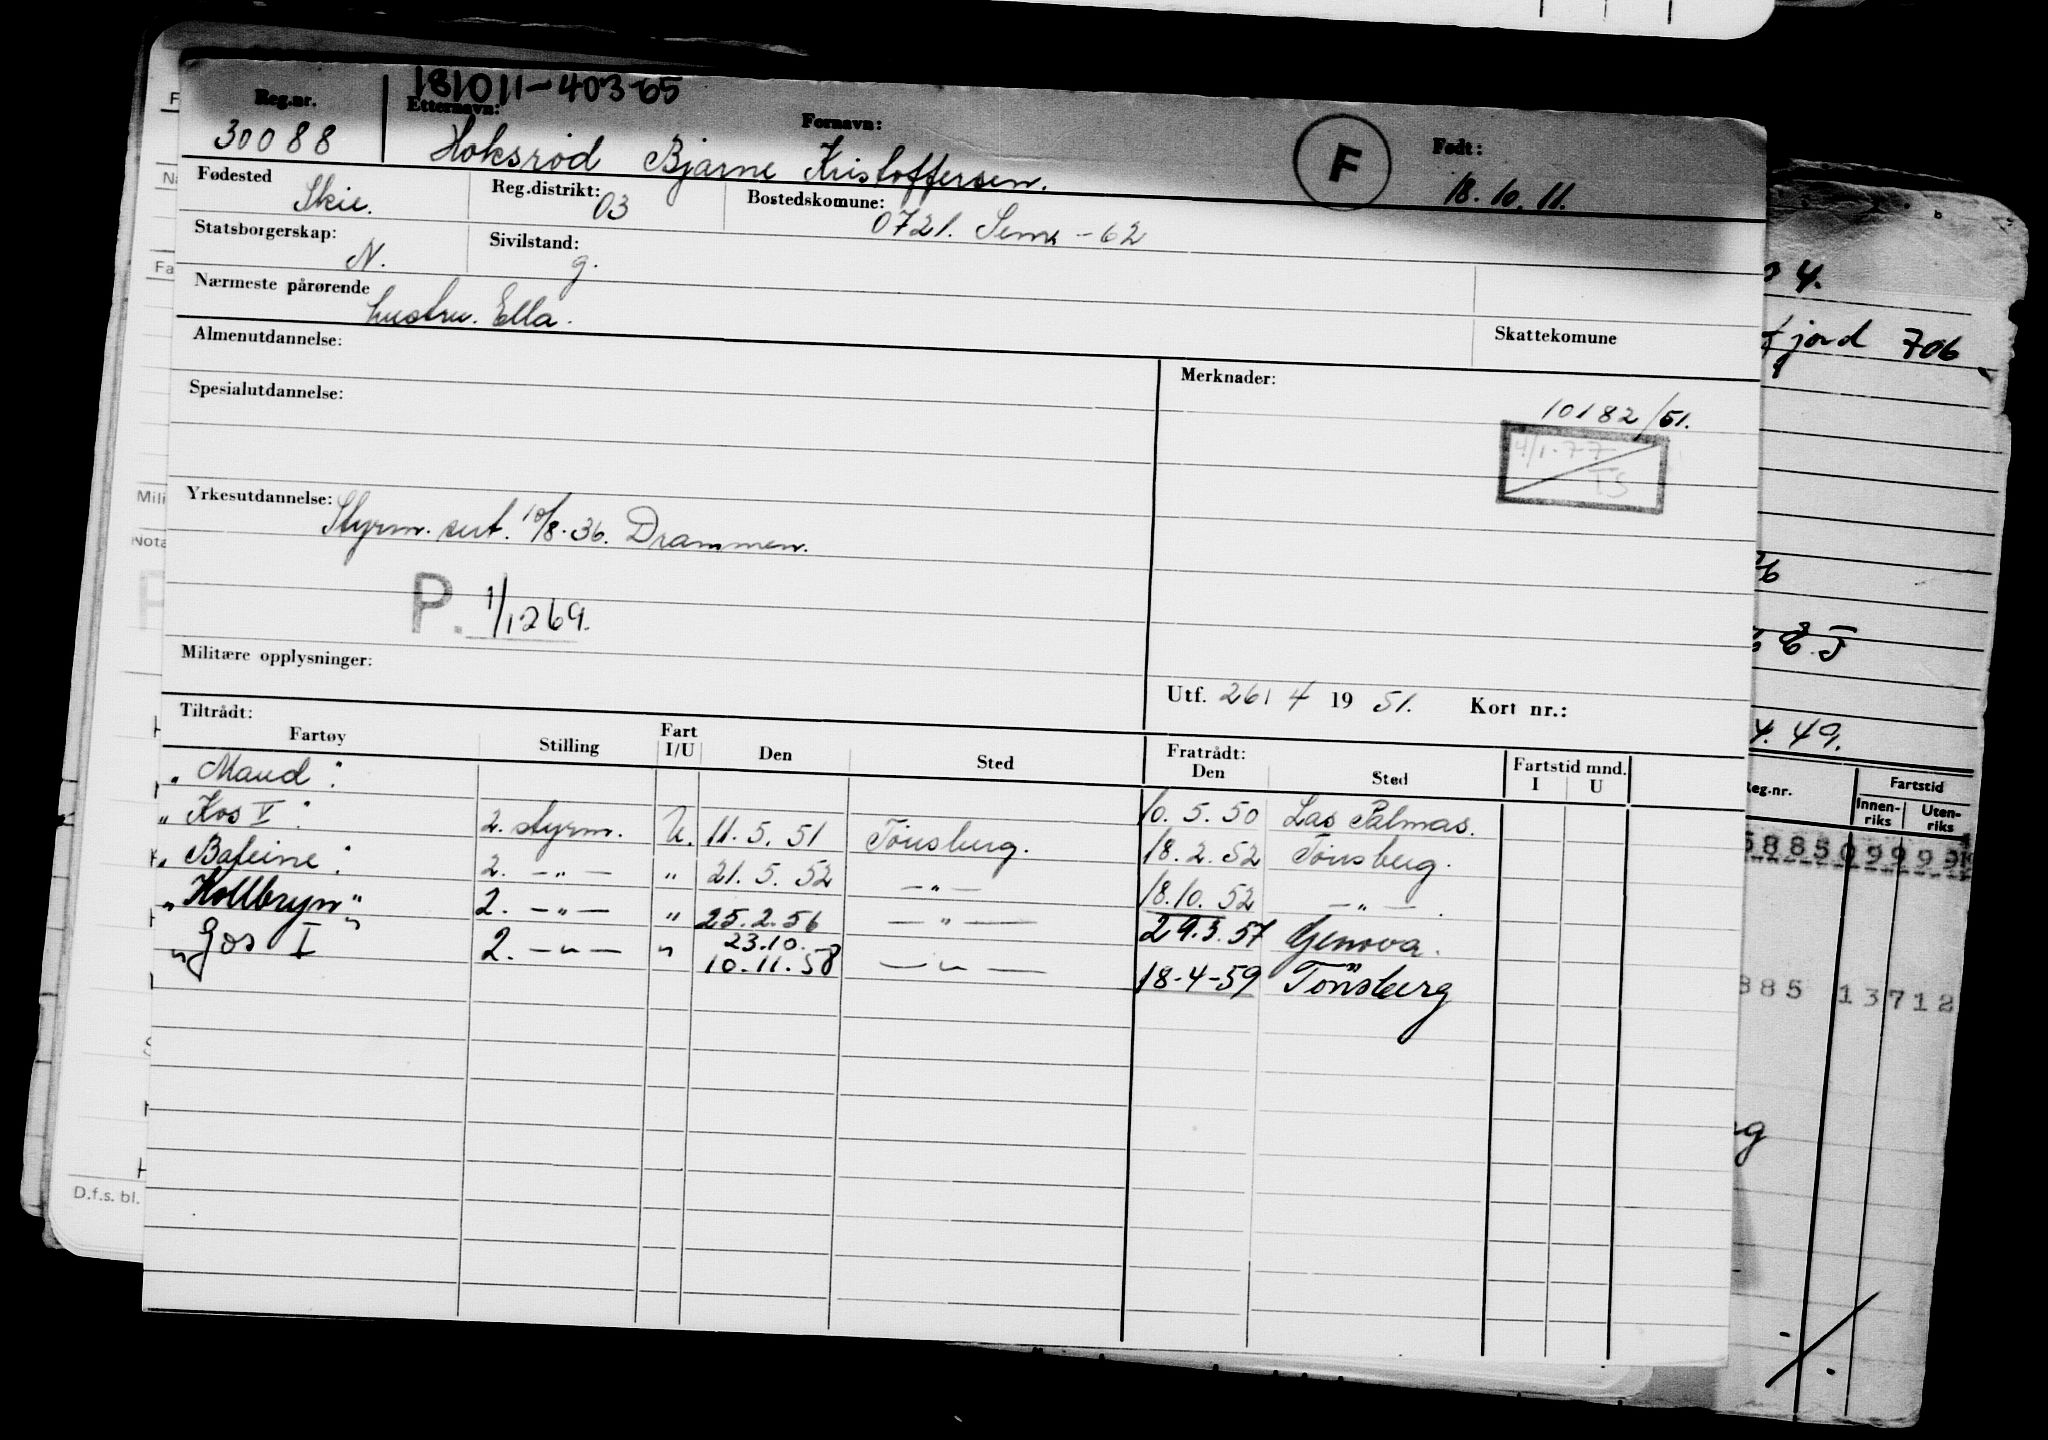 181011-40365
Reg.nr. Etternavn: Fornavn: Født:
30088 Hoksrød Bjarne Kristoffersen. F 18.10.11.
Fødested Skie. Reg.distrikt: 03 Bostedskomune: 0721. Sem -62
Statsborgerskap: N. Sivilstand: g.
Nærmeste pårørende hustru. Ella.
Skattekomune
Almenutdannelse: Merknader:
10182/51.
Spesialutdannelse:
4/1-77
TS
Yrkesutdannelse: Styrm. sert. 10/8-36. Drammen.
P. 1/1269.
Militære opplysninger:
Utf. 26/4 19 51. Kort nr.:
Tiltrådt: Fratrådt: Fartstid mnd.
Fartøy Stilling Fart I/U Den Sted Den Sted I U
"Maud": 10.5.50 Las Palmas.
"Kos V": 2. styrm. U. 11.5.51 Tönsberg. 18.2.52 Tönsberg.
"Baleine": 2. -"- " 21.5.52 -"- 18.10.52 -"-.
"Kollbryn" 2. -"- " 25.2.56 -"- 29.3.57 Genova.
23.10.
"Gos I" 2. -"- " 10.11.58 -"- 18-4-59 Tönsberg
4.
fjord 706
4.49.
Reg.nr. Fartstid
Innenriks Utenriks
885 13712
D.f.s. bl.